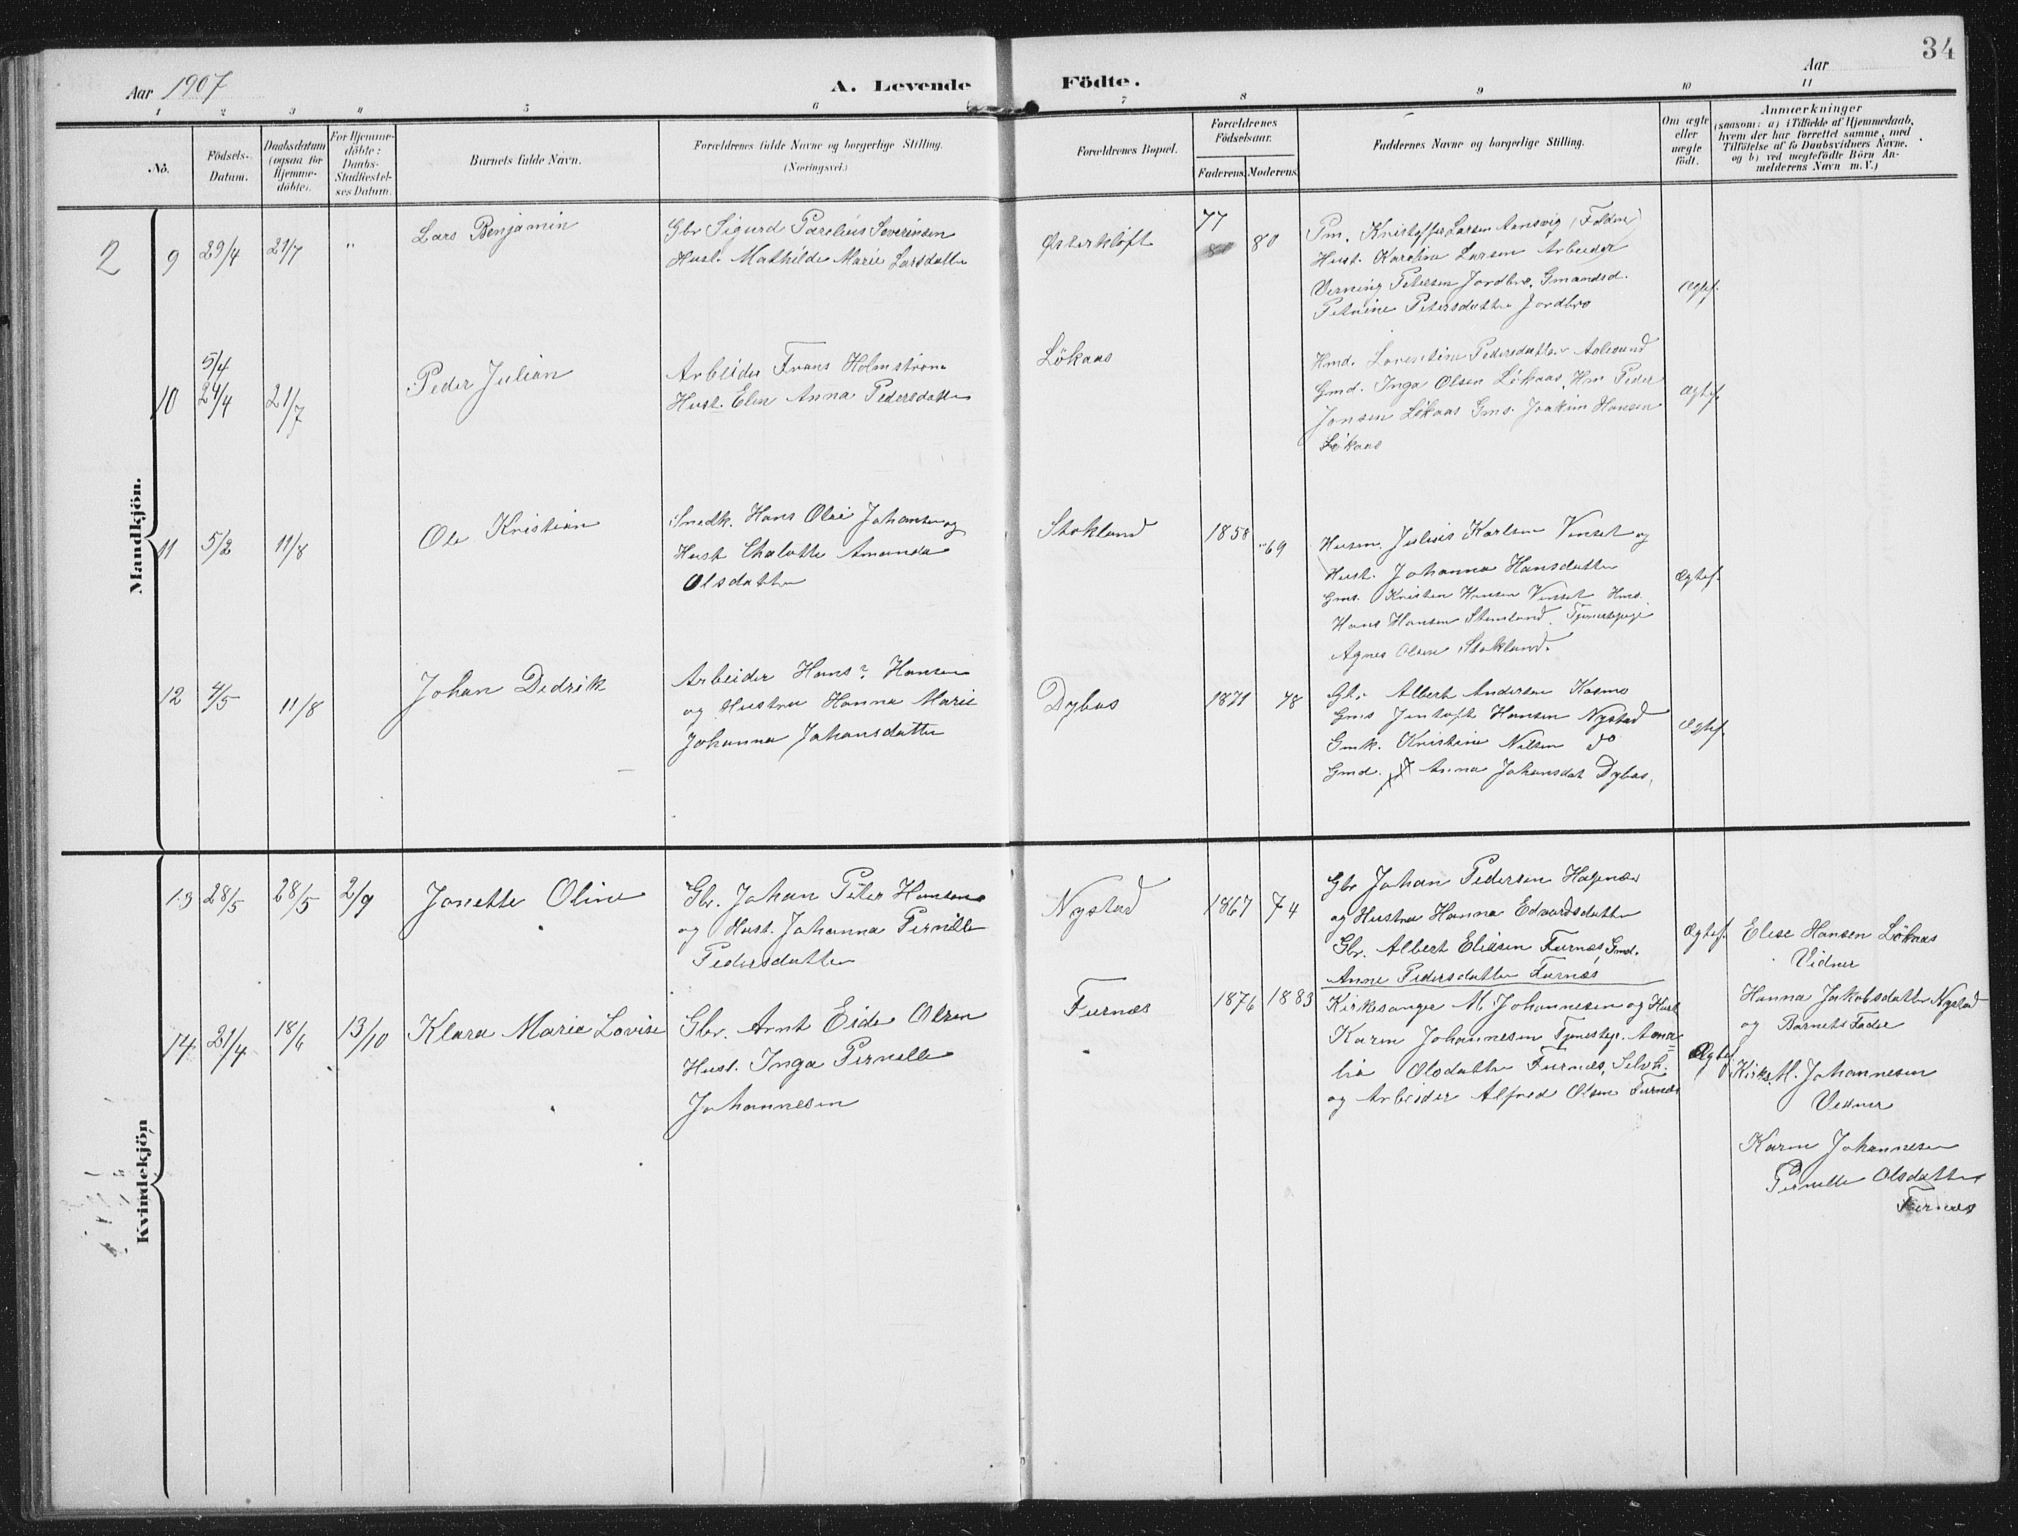 34
Aar 1907
A. Levende Födte.
Aar
1 2 3 4 5 6 7 8 9 10 11
No.
Födsels-
Datum.
Daabsdatum
(ogsaa for
Hjemme-
döbte).
For Hjemme-
döbte:
Daabs-
Stadfæstel-
ses Datum.
Barnets fulde Navn.
Forældrenes fulde Navne og borgerlige Stilling.
(Næringsvei.)
Forældrenes Bopæl.
Forældrenes
Födselsaar.
Faderens. Moderens.
Faddernes Navne og borgerlige Stilling.
Om ægte
eller
uægte
født.
Anmærkninger
(saasom: a) i Tilfælde af Hjemmedaab,
hvem der har forrettet samme, med
Tilföielse af to Daabsvidners Navne,
og b) ved uægtefödte Börn An-
melderens Navn m.V.)
Mandkjön.
2
9 29/4 21/7 "
Lars Benjamin
Gbr Sigurd Parelius Severinsen
Hust. Mathilde Marie Larsdatter
Østerkløft
77
80 80
Pm. Kristoffer Larsen Aansvig (Folden)
Hust. Karolina Larsen Arbeider
Verning Petersen Jordbro, Gmandsd.
Petrine Petersdatter Jordbro
Ægtef.
10 5/4
24/4 21/7
Peder Julian
Arbeider Frans Holmstrøm
Hust. Elen Anna Pedersdatter
Lökaas
Hmd. Lorentine Pedersdatter Aalesund
Gmd. Inga Olsen Lökaas, Hm Peder
Jonsen Lökaas Gms. Joakim Hansen
Lökaas
Ægtef.
11 5/2 11/8
Ole Kristian
Smedk. Hans Olai Johansen og
Hust Chalotte Amanda
Olsdatter
Stokland
1858 "69
Husm. Julius Karlsen Venset og
Hust. Johanna Hansdatter
Gms. Kristen Hansen Venset Hms.
Hans Hansen Stemland. Tjenestepige
Agnes Olsen Stokland.
Ægtef.
12 4/5 11/8
Johan Dedrik
Arbeider Hans Hansen
og Hustru Hanna Marie
Johanna Johansdatter
Dybas
1871 78
Gt. Albert Andersen Kosmo
Gms Jentoft Hansen Nystad
Gmk. Kristine Nilsen do
Gmd. Anna Johansdat Dybas.
Ægtef.
Kvindekjön
13 28/5 28/5 2/9
Jonette Oline
Gbr. Johan Peter Hansen
og Hust. Johanna Pernille
Pedersdatter
Nystad
1867 74
Gbr Johan Pedersen Hagenæs
og Hustru Hanna Edvardsdatter
Gbr. Albert Eliasen Furnes, Gmd.
Anne Pedersdatter Furnes
Ægtef.
Elise Hansen Lökaas
Vidner
Hanna Jakobsdatter Nystad
og Barnets Fader
14 21/4 18/6 13/10
Klara Marie Lovise
Gbr. Arnt Eide Olsen
Hust. Inga Pernelle
Johannesen
Furnes
1876 1883
Kirksanger M. Johannesen og Hust
Karen Johannesen Tjenestep. Ama=
lia Olsdatter Furnes, Selvh.
og Arbeider Alfred Olsen Furnes
Ægtef
Kirks. M. Johannesen
Vidner
Karen Johannesen
Pernelle Olsdatter
Furnes